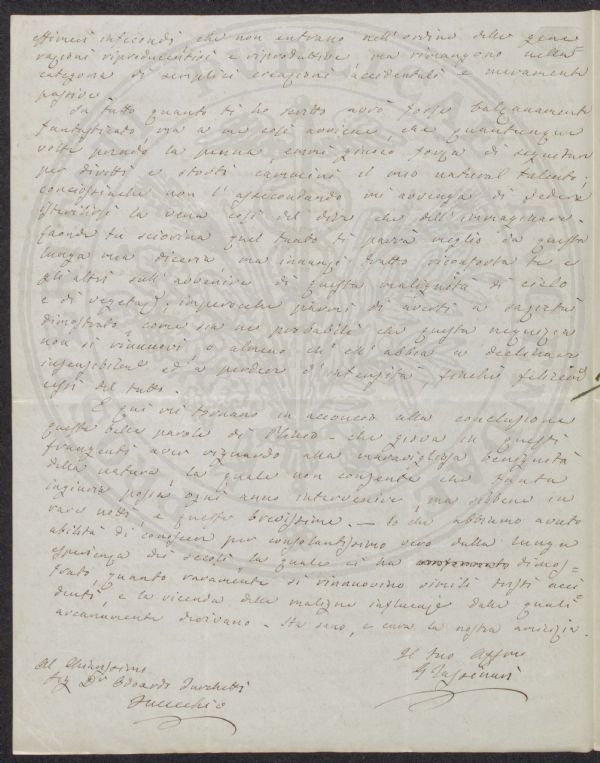 effimeri infecondi che non entrano nell'ordine delle gene
razioni riproducentisi e riproduttive ma rimangono nella
categoria di semplici creazioni accidentali e meramente
passive
Da tutto quanto ti ho scritto avrò forse
fantasticato ma a me così avviene, che quantunque
volte prendo la penna, emmi giuoco forza di seguitar
per diritti e storti cammini il mio natural talento;
conciossiachè non l'assecondando mi avvenga di vedere
isterilirsi la vena così del dire che dell'immaginare.
quel tanto ti parrà meglio da questa
lunga mia diceria ma innanzi tratto riconforta te e
gli altri sull'avvenire di questa malignità di cielo
e di vegetaz, imperocchè parmi di averti a sazietà
dimostrato come sia nei probabili che questa nequizia
non si rinnuovi o almeno ch'ell'abbia a declinare
insensibilme ed a perdere d'intensità finchè
cessi del tutto.
E qui mi tornano in acconcio alla conclusione
queste belle parole di Plinio - che giova in questi
frangenti aver riguardo alla maravigliosa benignità
della natura, la quale non consente che tanta
ingiuria possa ogni anno intervenire, ma sibbene in
rare notti, e queste brevissime. - Lo che abbiamo avuto
abilità di conoscere per consolantissimo vero dalla lunga
esperienza dei secoli la quale ci ha dimos=
trato, quanto raramente si rinnuovino simili tristi acci
denti, e la vicenda delle maligne influenze dalle quali
arcanamente derivano - Sta sano, e cura la nostra amicizia.
Il tuo Affmo
Al Chiarissimo
Sig Dr Edoardo Turchetti
Fucecchio